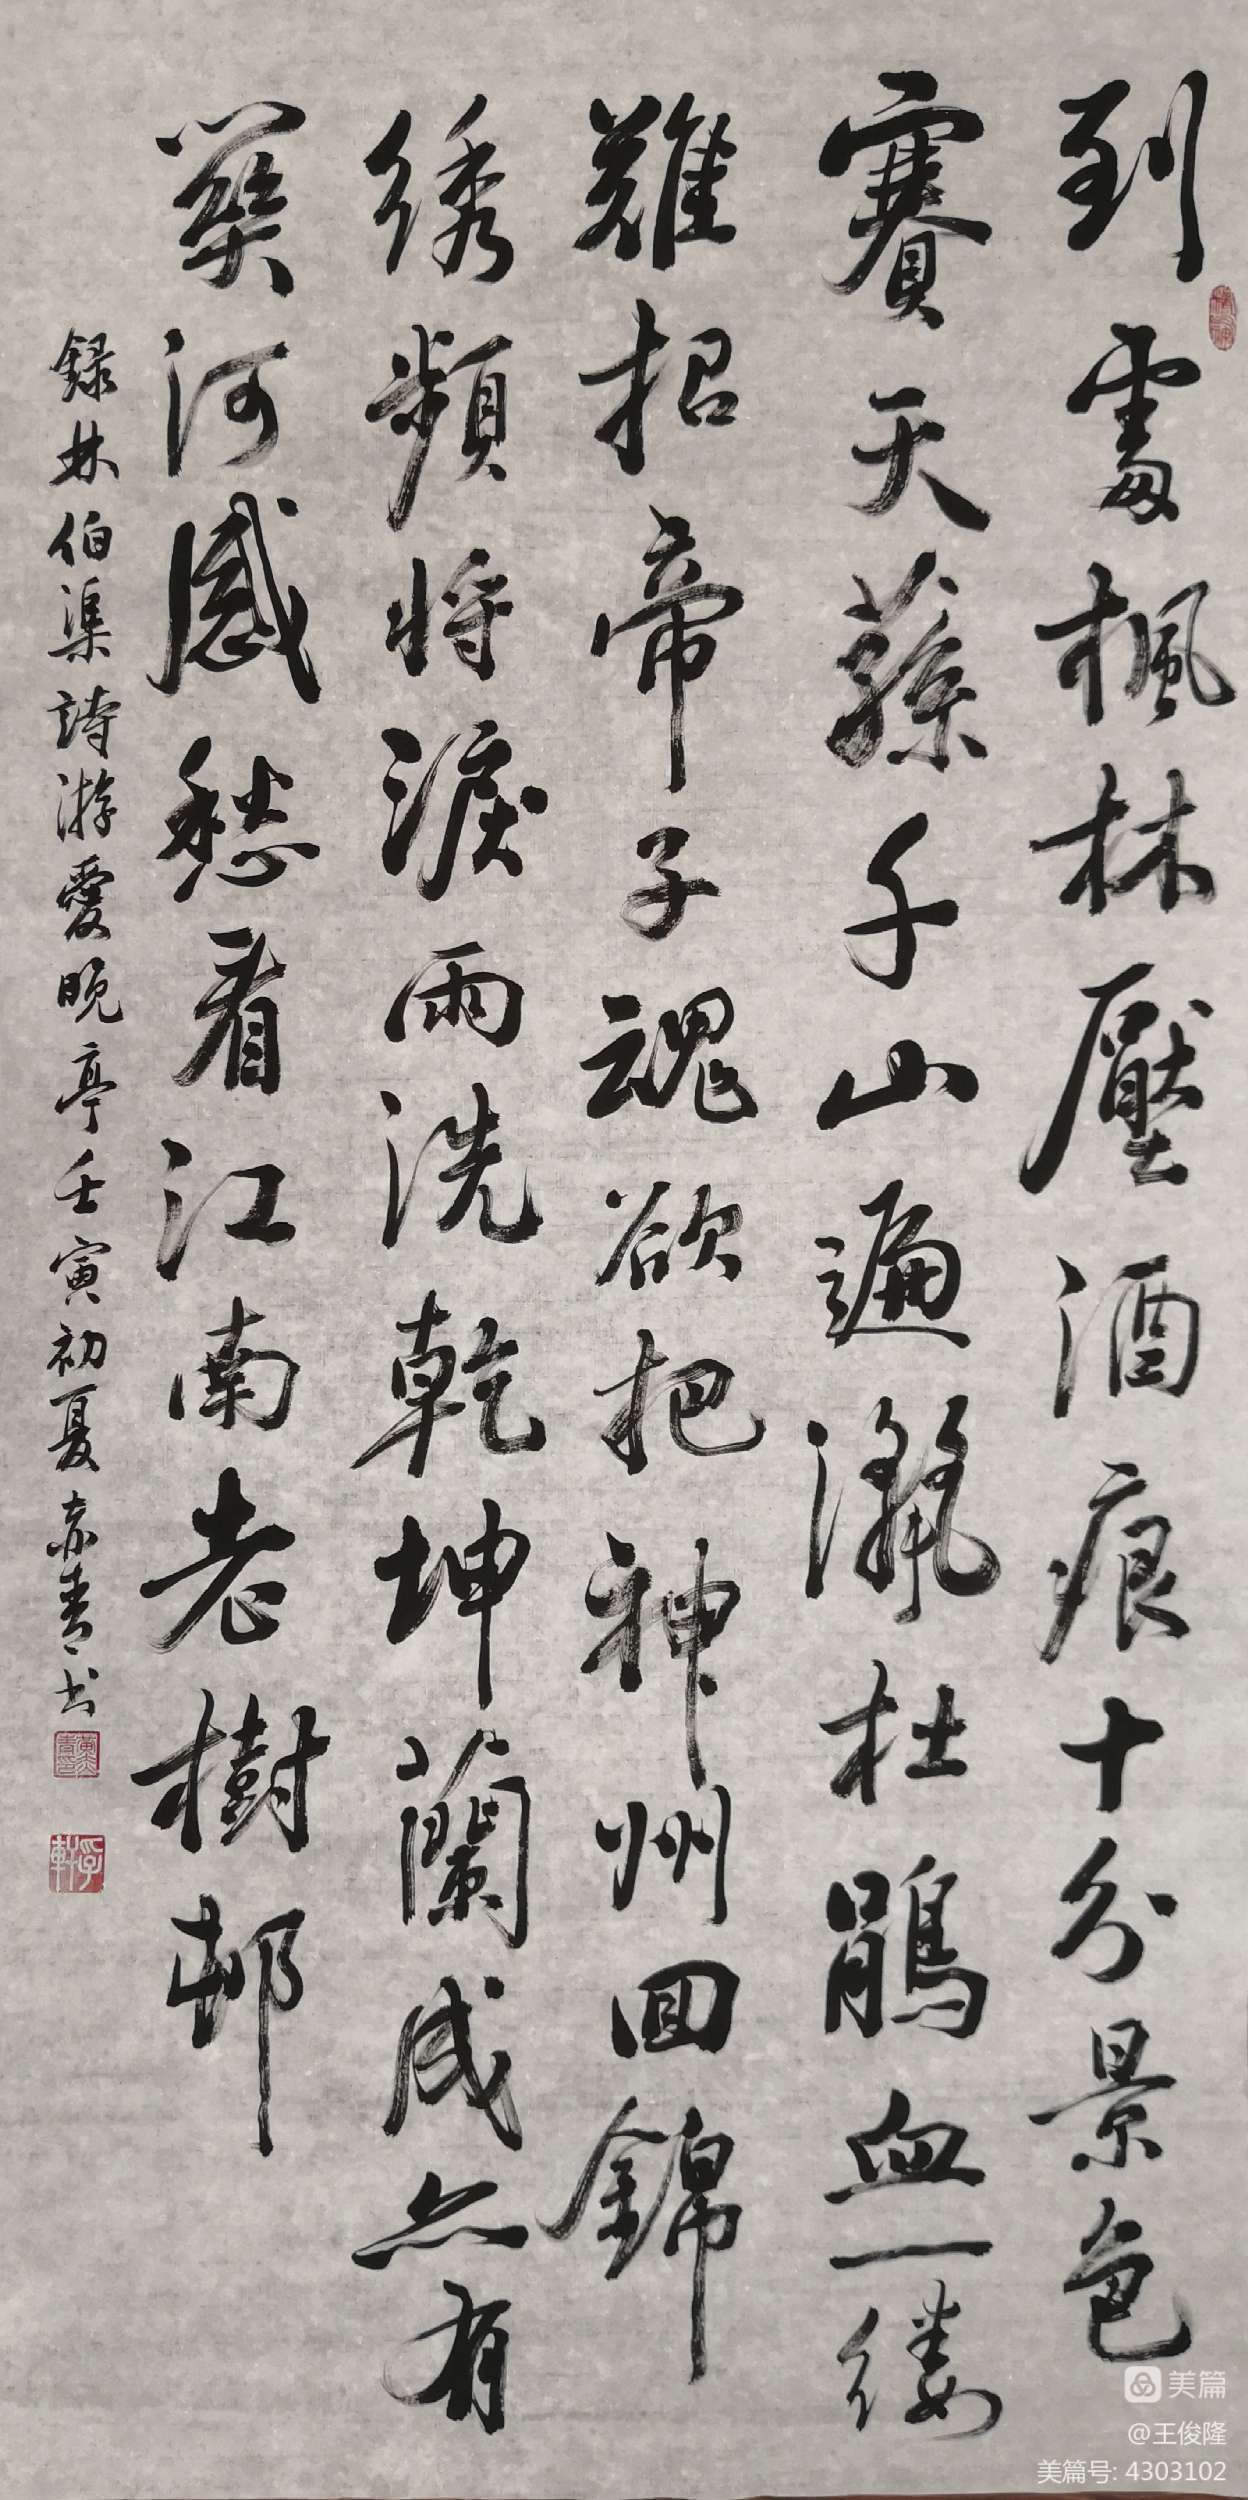 到處楓林壓酒痕十分景色
賽天蓀千山遍灑杜鵑血一縷
難招帝子魂欲把神州回錦
綉頻將淚雨洗乾坤蘭成亦有
關河感愁看江南老樹邨
錄林伯渠詩游愛晚亭壬寅初夏亦青书
美篇
@王俊隆
美篇号: 4303102